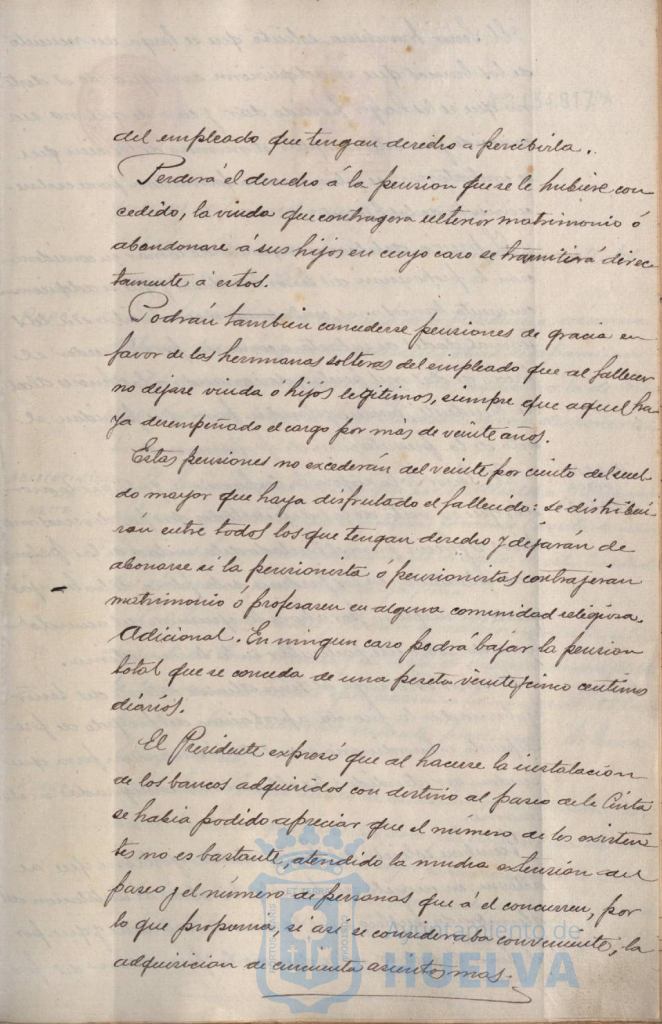 del empleado que tengan derecho a percibirla.
Perderá el derecho á la pension que se le hubiere con
cedido, la viuda que contragera ulterior matrimonio ó
abandonase á sus hijos en cuyo caso se tramitirá direc
tamente á estos.
Podrán tambien concederse pensiones de gracia en
favor de las hermanas solteras del empleado que al fallecer
no dejase viuda ó hijos legitimos, siempre que aquel ha-
ya desempeñado el cargo por más de veinte años.
Estas pensiones no excederán del veinte por ciento del suel-
do mayor que haya disfrutado el fallecido: se distribui-
rán entre todos los que tengan derecho y dejarán de
abonarse si la pensionista ó pensionistas contrajeran
matrimonio ó profesaren en alguna comunidad religiosa.
Adicional. En ningun caso podrá bajar la pension
total que se conceda de una peseta veinticinco centimos
diários.
El Presidente expresó que al hacerse la instalacion
de los bancos adquiridos con destino al paseo de la Cinta
se habia podido apreciar que el número de los existen
tes no es bastante, atendido la mucha extension del
paseo y el número de personas que á él concurren, por
lo que proponia, si asi se consideraba conveniente, la
adquisicion de cincuenta asientos mas.
Ayuntamiento de
HUELVA